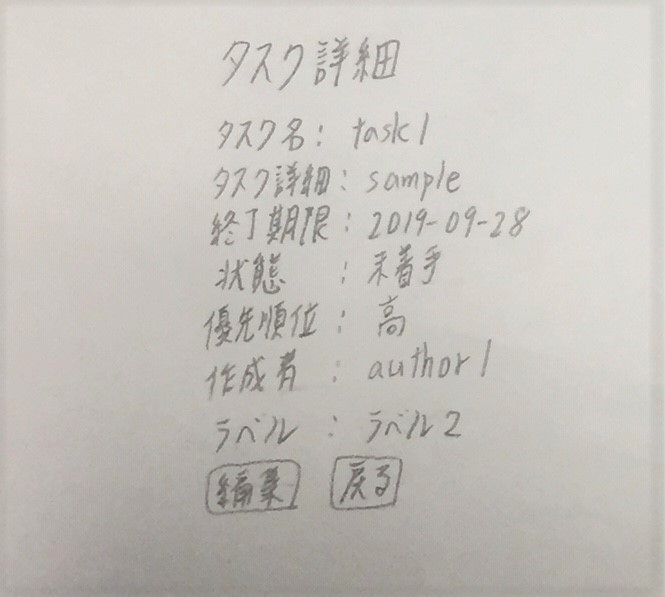 タスク詳細
タスク名: task1
タスク詳細: sample
終了期限: 2019-09-28
状態 : 未着手
優先順位: 高
作成者 : author1
ラベル : ラベル2
編集 戻る